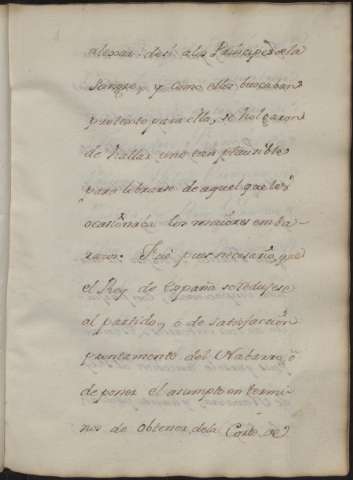 alexar desi alos Principes de la
Sangre, y como ellos buscaban
pretexto para ella, se holgaron
de hallar uno tan plausible
para librarse de aquel que les
ocasionaba los maiores emba-
razos. Fué pues necesario, que
el Rey de España se redujese
al partido, o de satisfacion
puntamente del Nabarro, ó
de poner el asumpto en termi-
nos de obtener de la Corte de